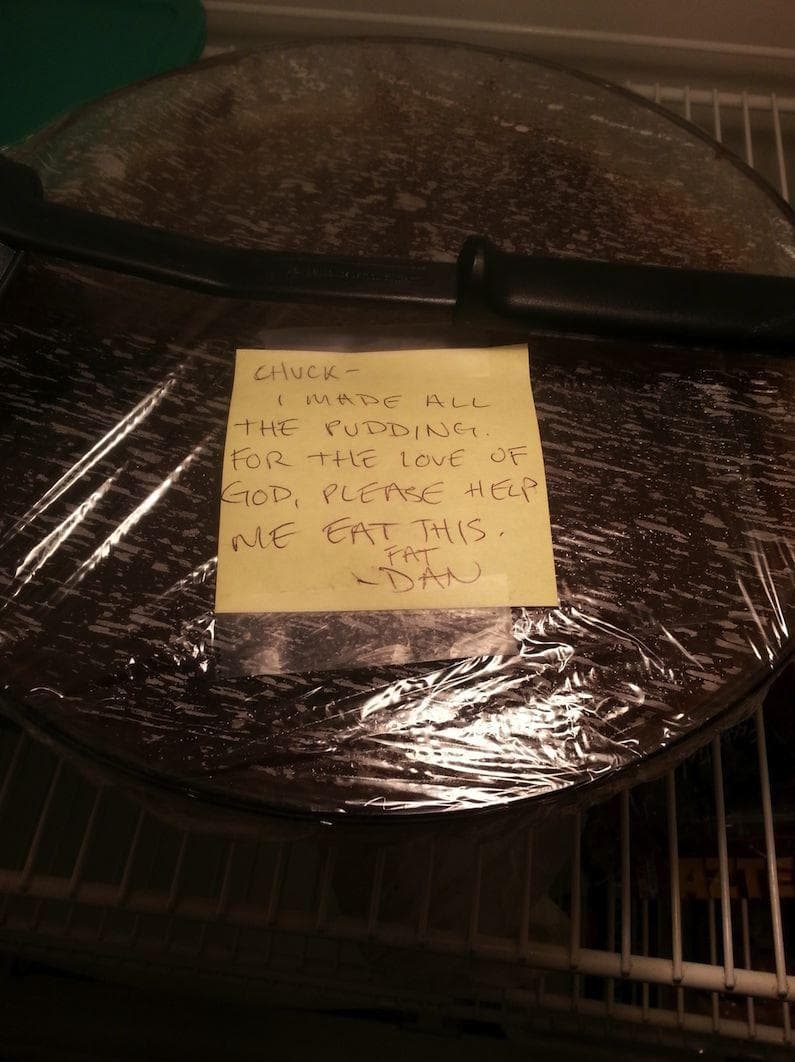 CHUCK-
I MADE ALL
THE PUDDING.
FOR THE LOVE OF
GOD, PLEASE HELP
ME EAT THIS.
FAT
-DAN
AZTE